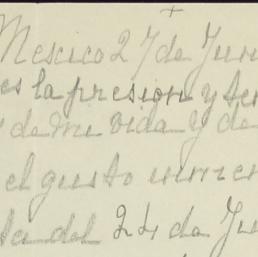 Mexico 27 de Jun
es la presion y ten
de mi vida y de
el gusto inmen
del 24 de Ju